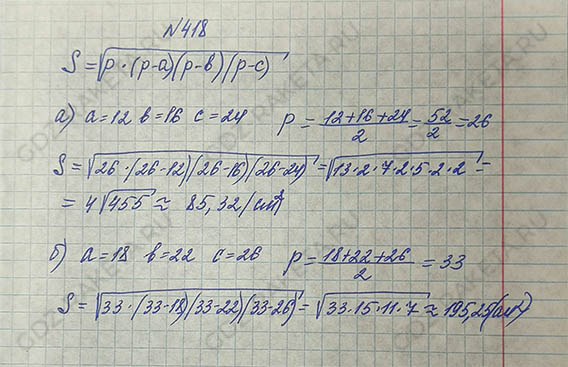 №418
S = √(p·(p-a)(p-в)(p-c))
а) a=12 в=16 c=24 p = (12+16+24)/2 = 52/2 = 26
S = √(26·(26-12)(26-16)(26-24)) = √(13·2·7·2·5·2·2) =
= 4√455 ≈ 85,32 (см²)
б) a=18 в=22 c=26 p = (18+22+26)/2 = 33
S = √(33·(33-18)(33-22)(33-26)) = √(33·15·11·7) ≈ 195,25 (дм²)
GDZ RAKETA.RU